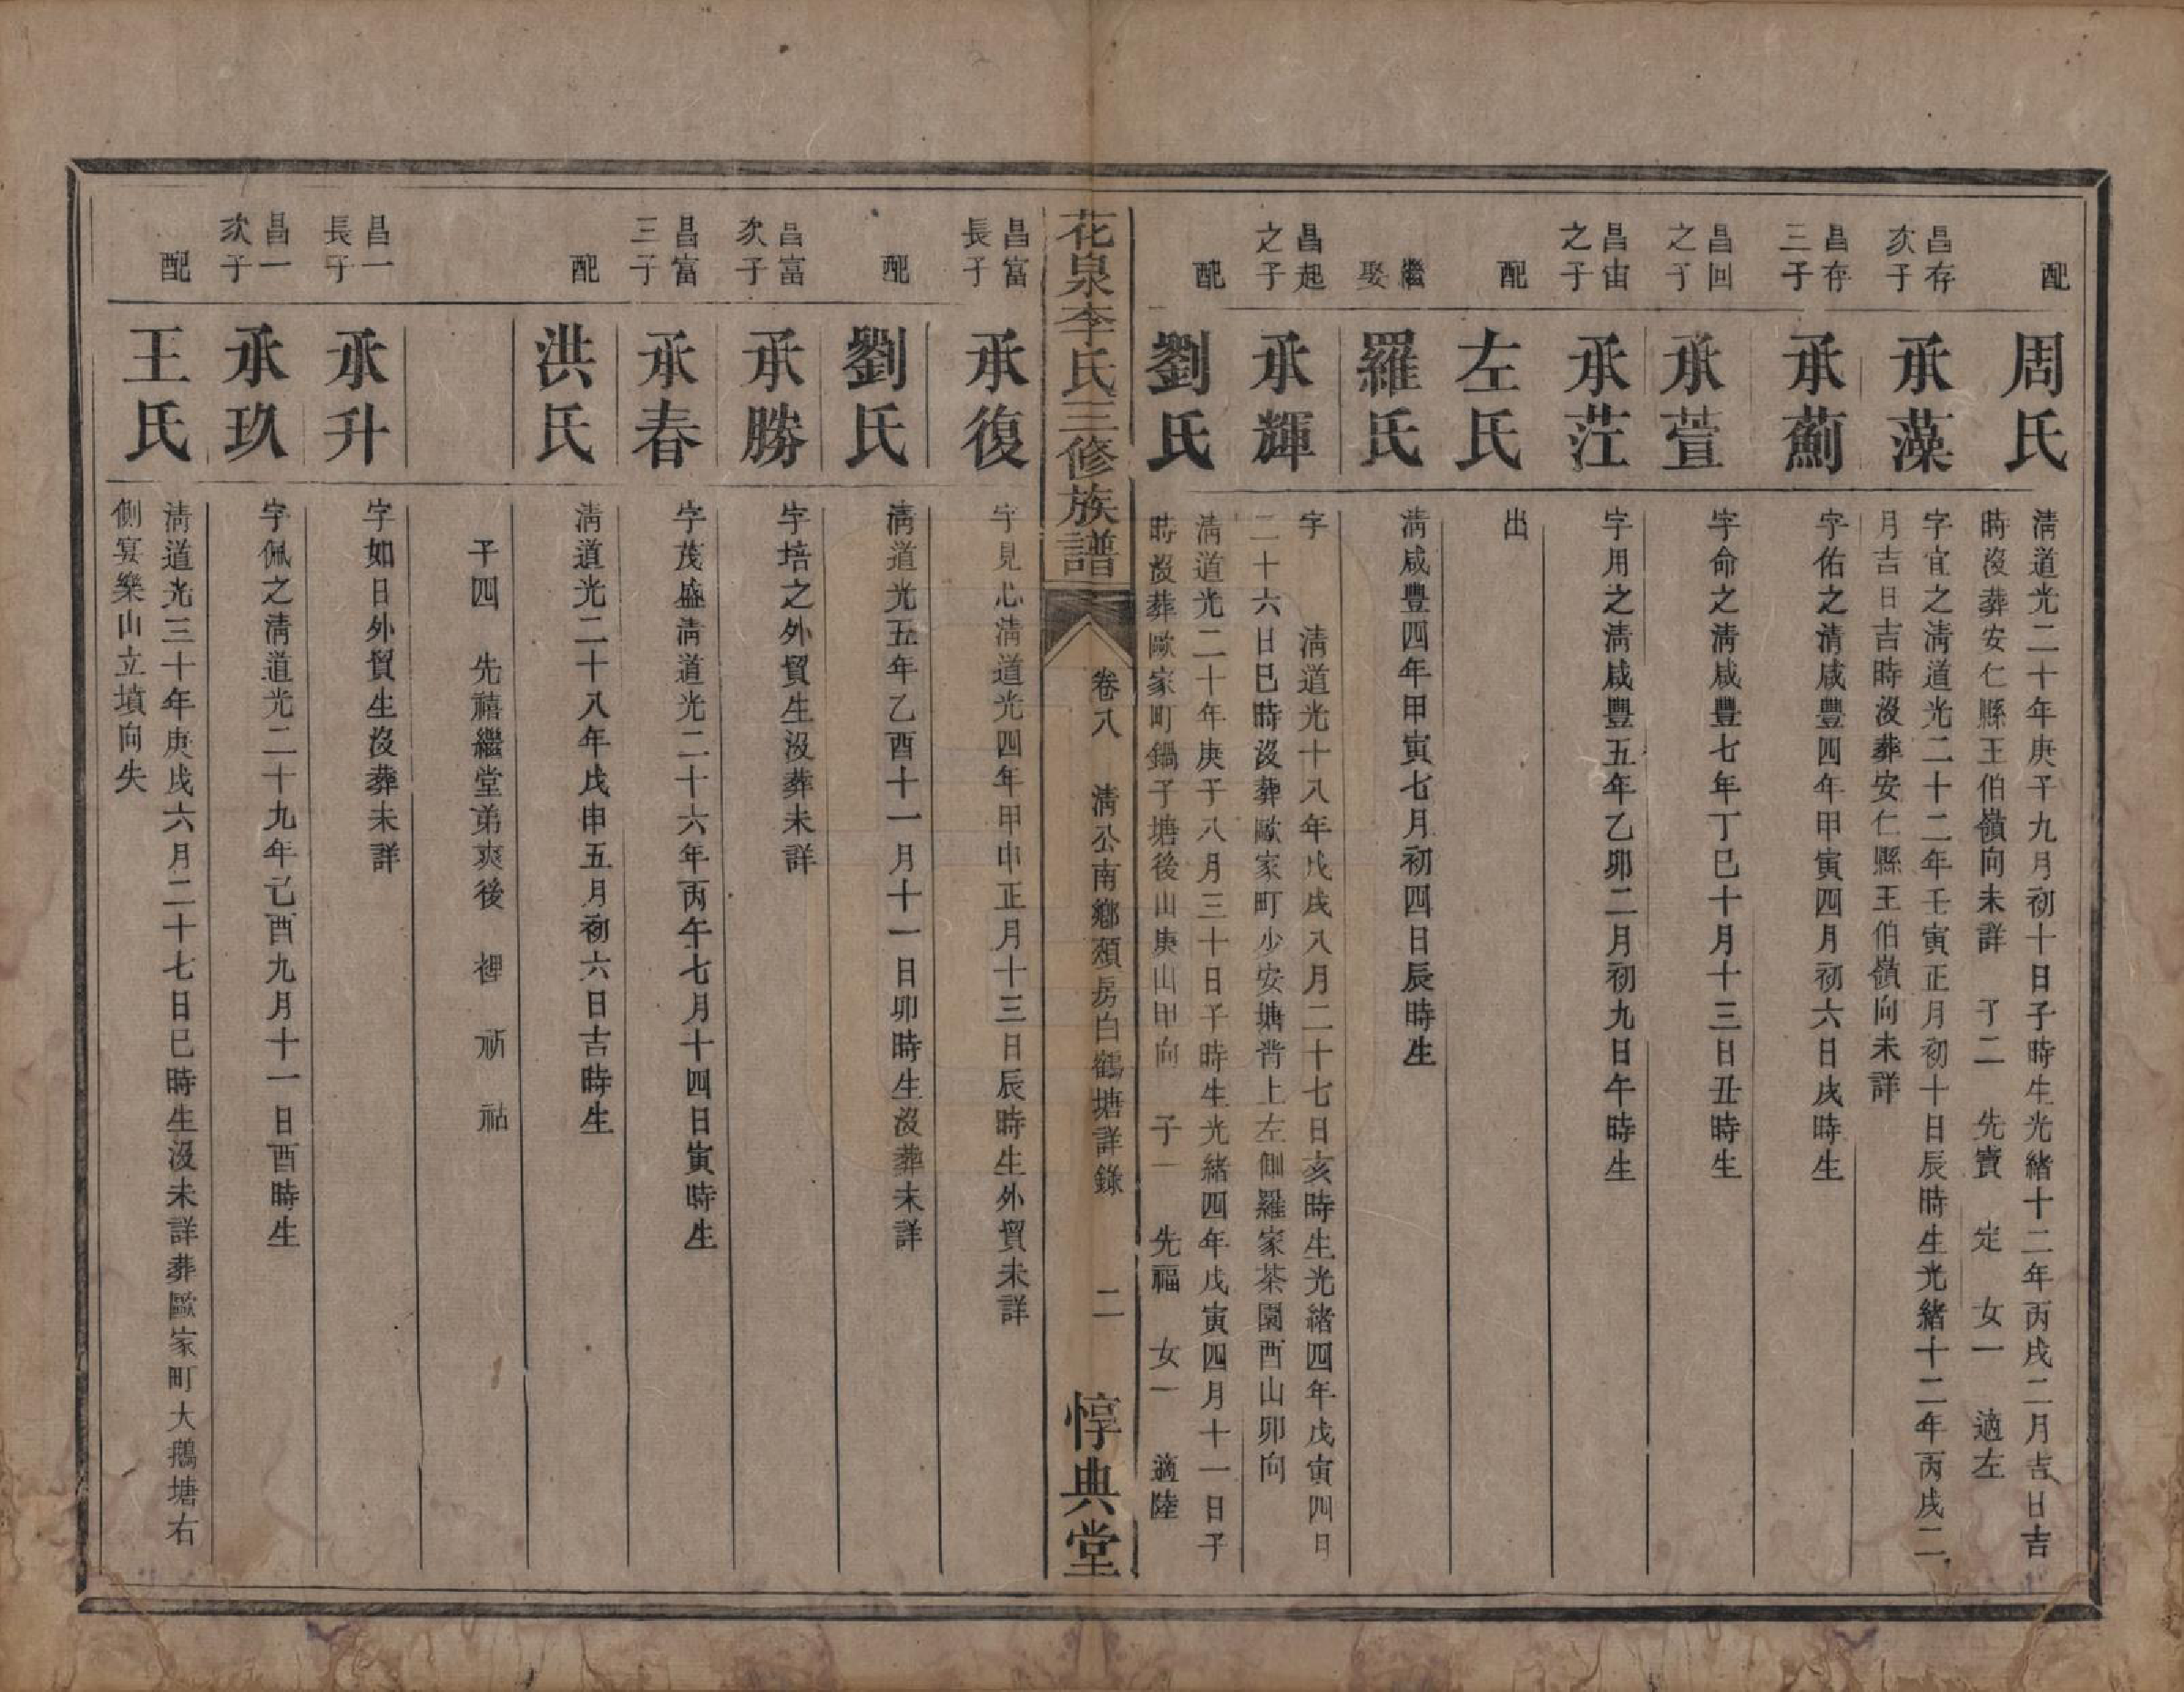 配
周氏
淸道光二十年庚子九月初十日子時生光緒十二年丙戌二月吉日吉
時沒葬安仁縣王伯嶺向未詳 子二 先寶 定 女一 適左
昌存
次子
承藻
字宜之淸道光二十二年壬寅正月初十日辰時生光緒十二年丙戌二
月吉日吉時沒葬安仁縣王伯嶺向未詳
昌存
三子
承薊
字佑之淸咸豐四年甲寅四月初六日戌時生
昌回
之子
承萱
字命之淸咸豐七年丁巳十月十三日丑時生
昌由
之子
承茳
字用之淸咸豐五年乙卯二月初九日午時生
配
左氏
出
繼
娶
羅氏
淸咸豐四年甲寅七月初四日辰時生
昌起
之子
承輝
字 淸道光十八年戊戌八月二十七日亥時生光緒四年戊寅四日
二十六日巳時沒葬歐家町少安塘背上左側羅家茶園酉山卯向
配
劉氏
淸道光二十年庚子八月三十日子時生光緒四年戊寅四月十一日子
時沒葬歐家町鍋子塘後山庚山甲向 子一 先福 女一 適陸
花泉李氏三修族譜
卷八 淸公南鄉須房白鶴塘詳錄 二
惇典堂
昌富
長子
承復
字見心淸道光四年甲申正月十三日辰時生外貿未詳
配
劉氏
淸道光五年乙酉十一月十一日卯時生沒葬未詳
昌富
次子
承勝
字培之外貿生沒葬未詳
昌富
三子
承春
字茂盛淸道光二十六年丙午七月十四日寅時生
配
洪氏
淸道光二十八年戊申五月初六日吉時生
子四 先禧繼堂弟爽後 裡 祈 祜
昌一
長子
承升
字如日外貿生沒葬未詳
昌一
次子
承玖
字佩之淸道光二十九年己酉九月十一日酉時生
配
王氏
淸道光三十年庚戌六月二十七日巳時生沒未詳葬歐家町大鵝塘右
側宴樂山立墳向失